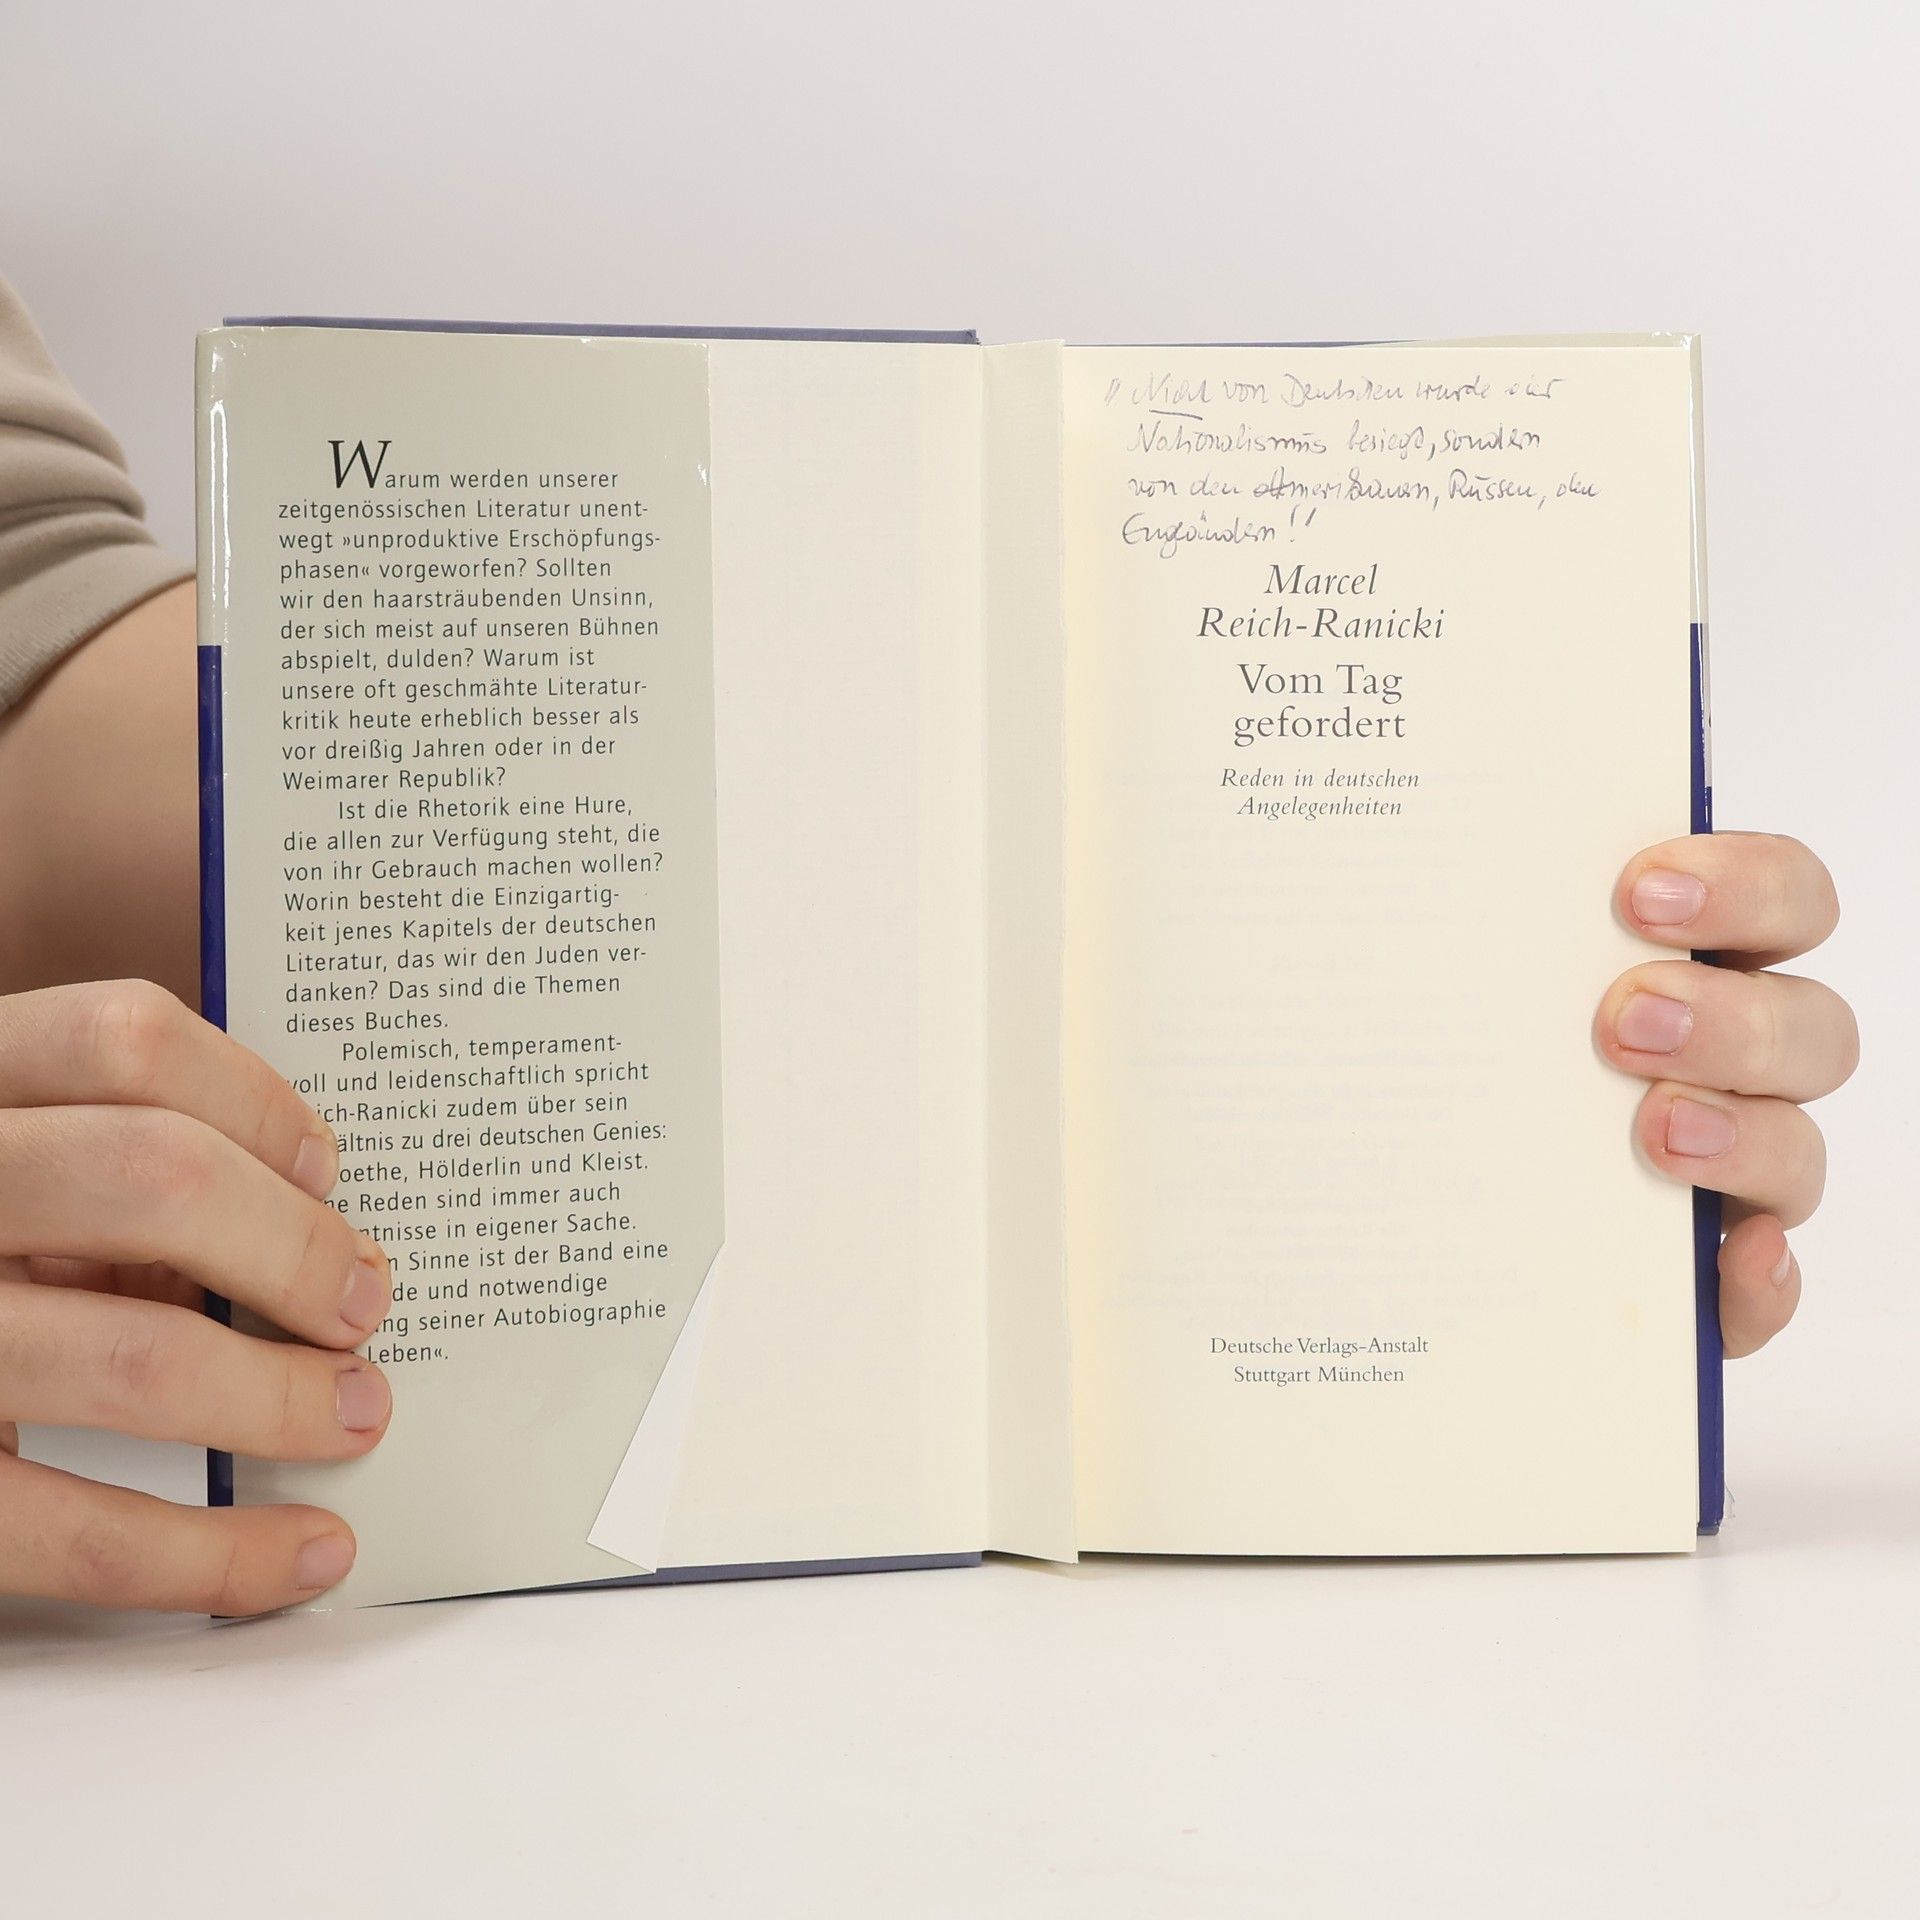 Warum werden unserer
zeitgenössischen Literatur unent-
wegt »unproduktive Erschöpfungs-
phasen« vorgeworfen? Sollten
wir den haarsträubenden Unsinn,
der sich meist auf unseren Bühnen
abspielt, dulden? Warum ist
unsere oft geschmähte Literatur-
kritik heute erheblich besser als
vor dreißig Jahren oder in der
Weimarer Republik?
Ist die Rhetorik eine Hure,
die allen zur Verfügung steht, die
von ihr Gebrauch machen wollen?
Worin besteht die Einzigartig-
keit jenes Kapitels der deutschen
Literatur, das wir den Juden ver-
danken? Das sind die Themen
dieses Buches.
Polemisch, temperament-
voll und leidenschaftlich spricht
ich-Ranicki zudem über sein
ältnis zu drei deutschen Genies:
oethe, Hölderlin und Kleist.
ne Reden sind immer auch
ntnisse in eigener Sache.
m Sinne ist der Band eine
de und notwendige
ng seiner Autobiographie
Leben«.
"Nicht von Deutschen wurde der
Nationalismus besiegt, sondern
von den Amerikanern, Russen, den
Engländern!"
Marcel
Reich-Ranicki
Vom Tag
gefordert
Reden in deutschen
Angelegenheiten
Deutsche Verlags-Anstalt
Stuttgart München